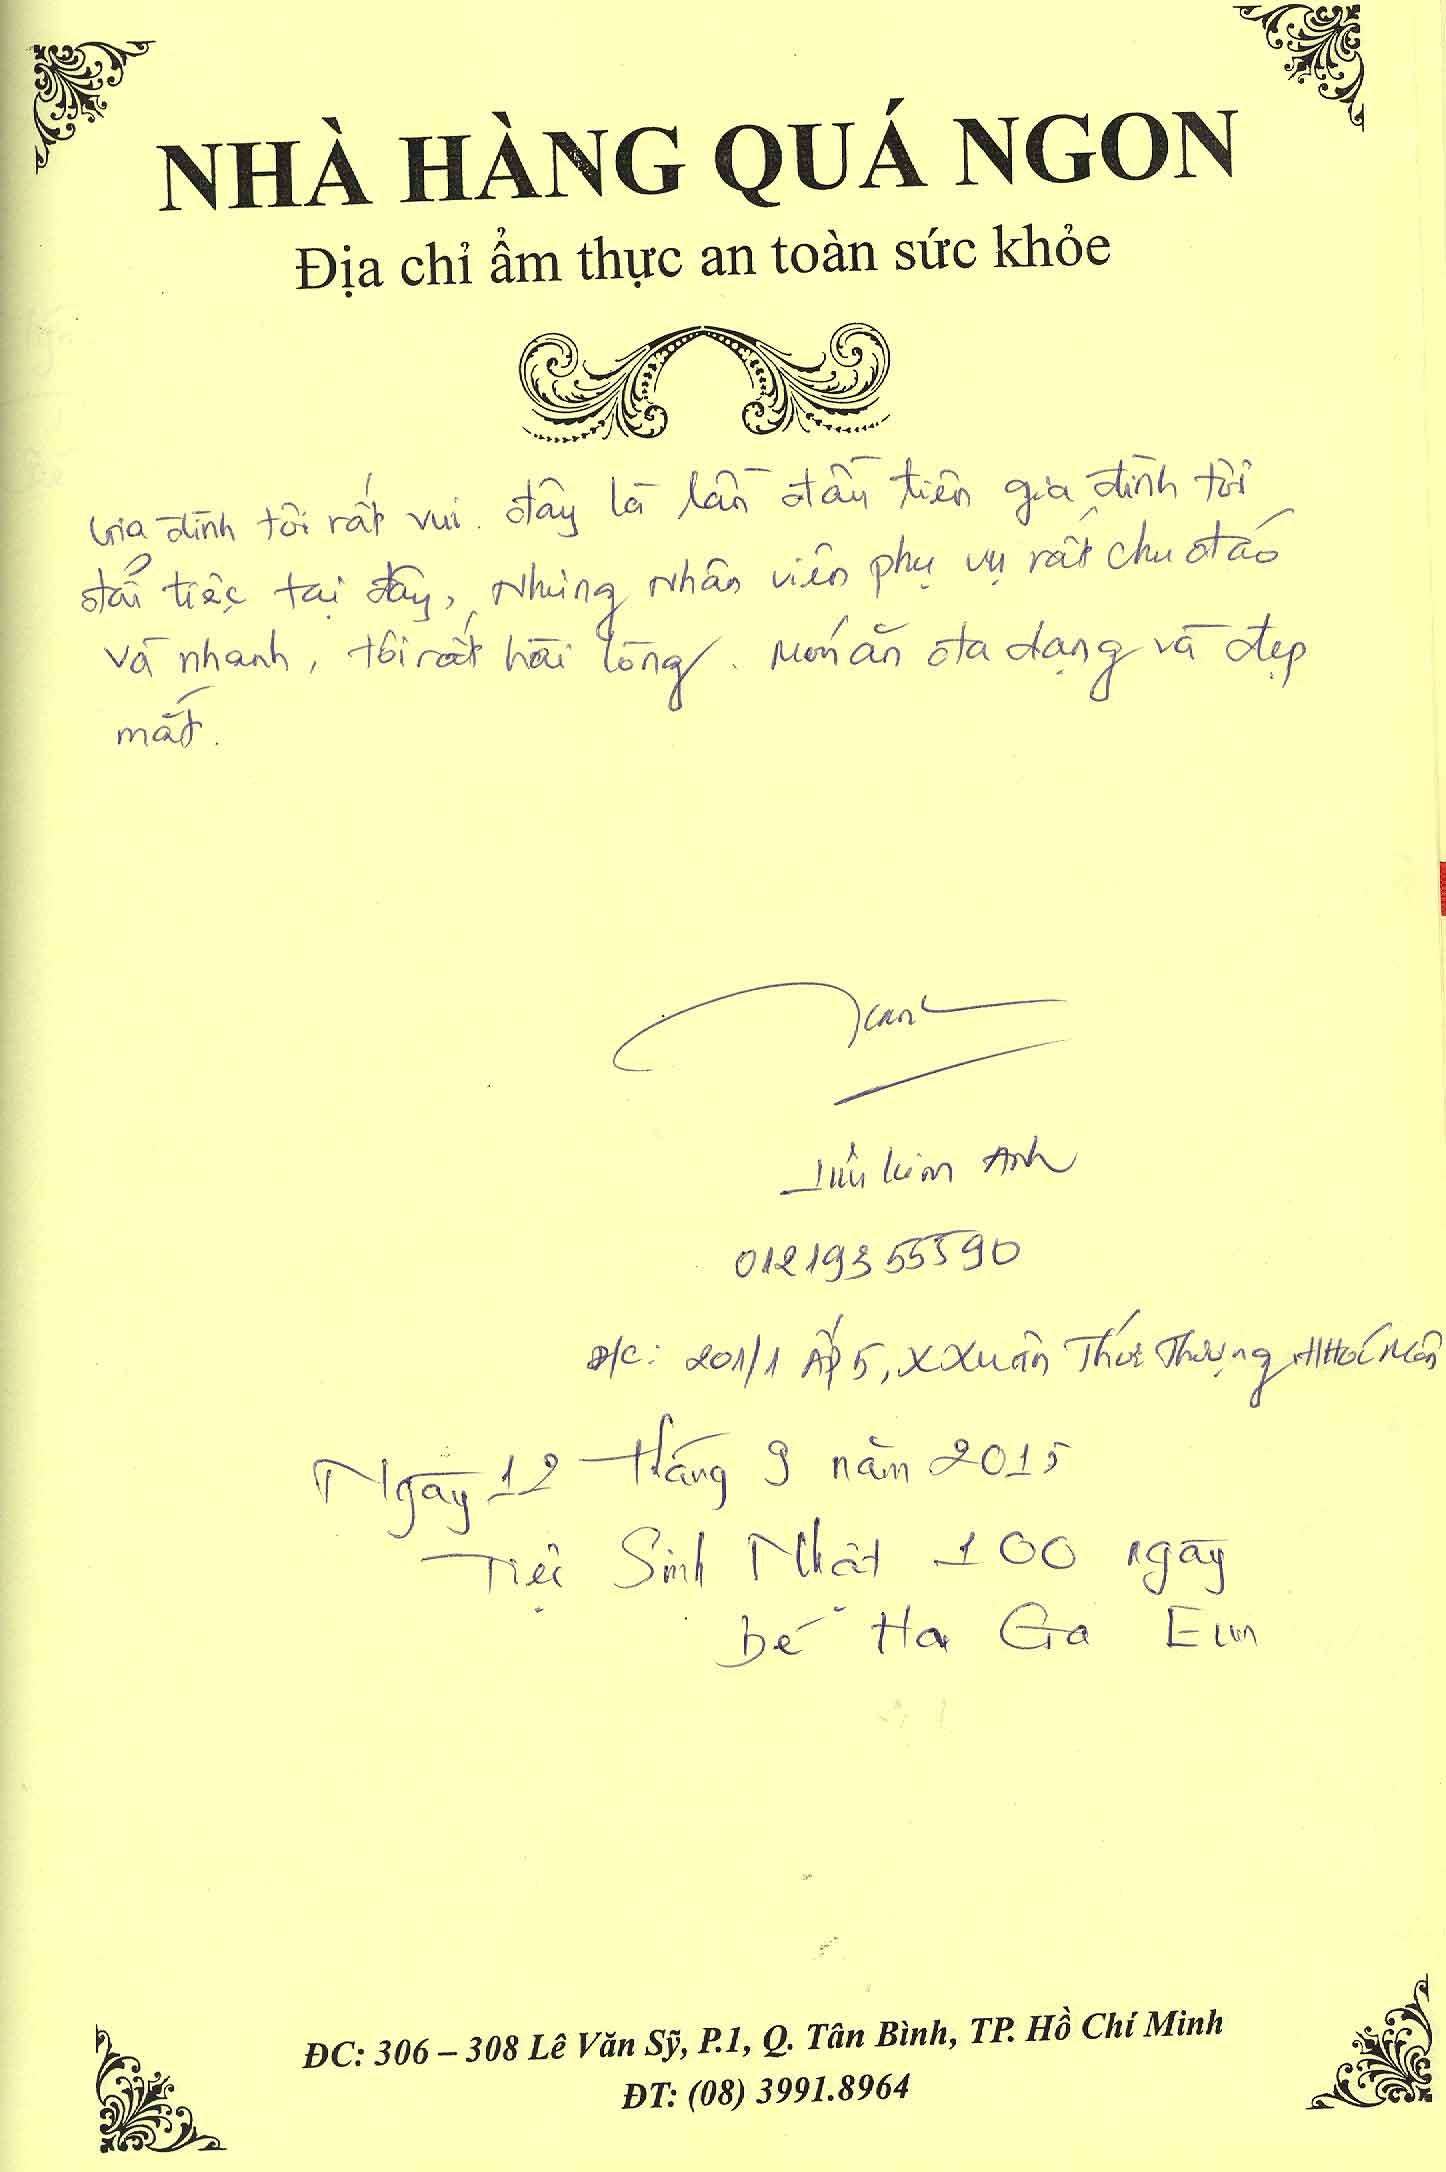 NHÀ HÀNG QUÁ NGON
Địa chỉ ẩm thực an toàn sức khỏe
Gia đình tôi rất vui. đây là lần đầu tiên gia đình tôi
đãi tiệc tại đây, Những nhân viên phụ vụ rất chu đáo
và nhanh, tôi rất hài lòng. món ăn đa dạng và đẹp
mắt.
Lưu Kim Anh
01219355590
Đ/C: 201/1 Ấp 5, X Xuân Thới Thượng, H Hóc Môn
Ngày 12 tháng 9 năm 2015
Tiệc Sinh Nhật 100 ngày
bé Ha Ga Eun
ĐC: 306 – 308 Lê Văn Sỹ, P.1, Q. Tân Bình, TP. Hồ Chí Minh
ĐT: (08) 3991.8964